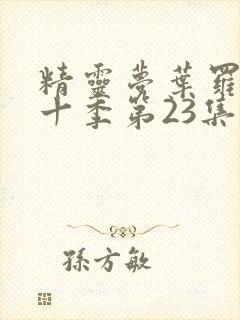 精靈夢葉羅
十季第23集
孫方敏